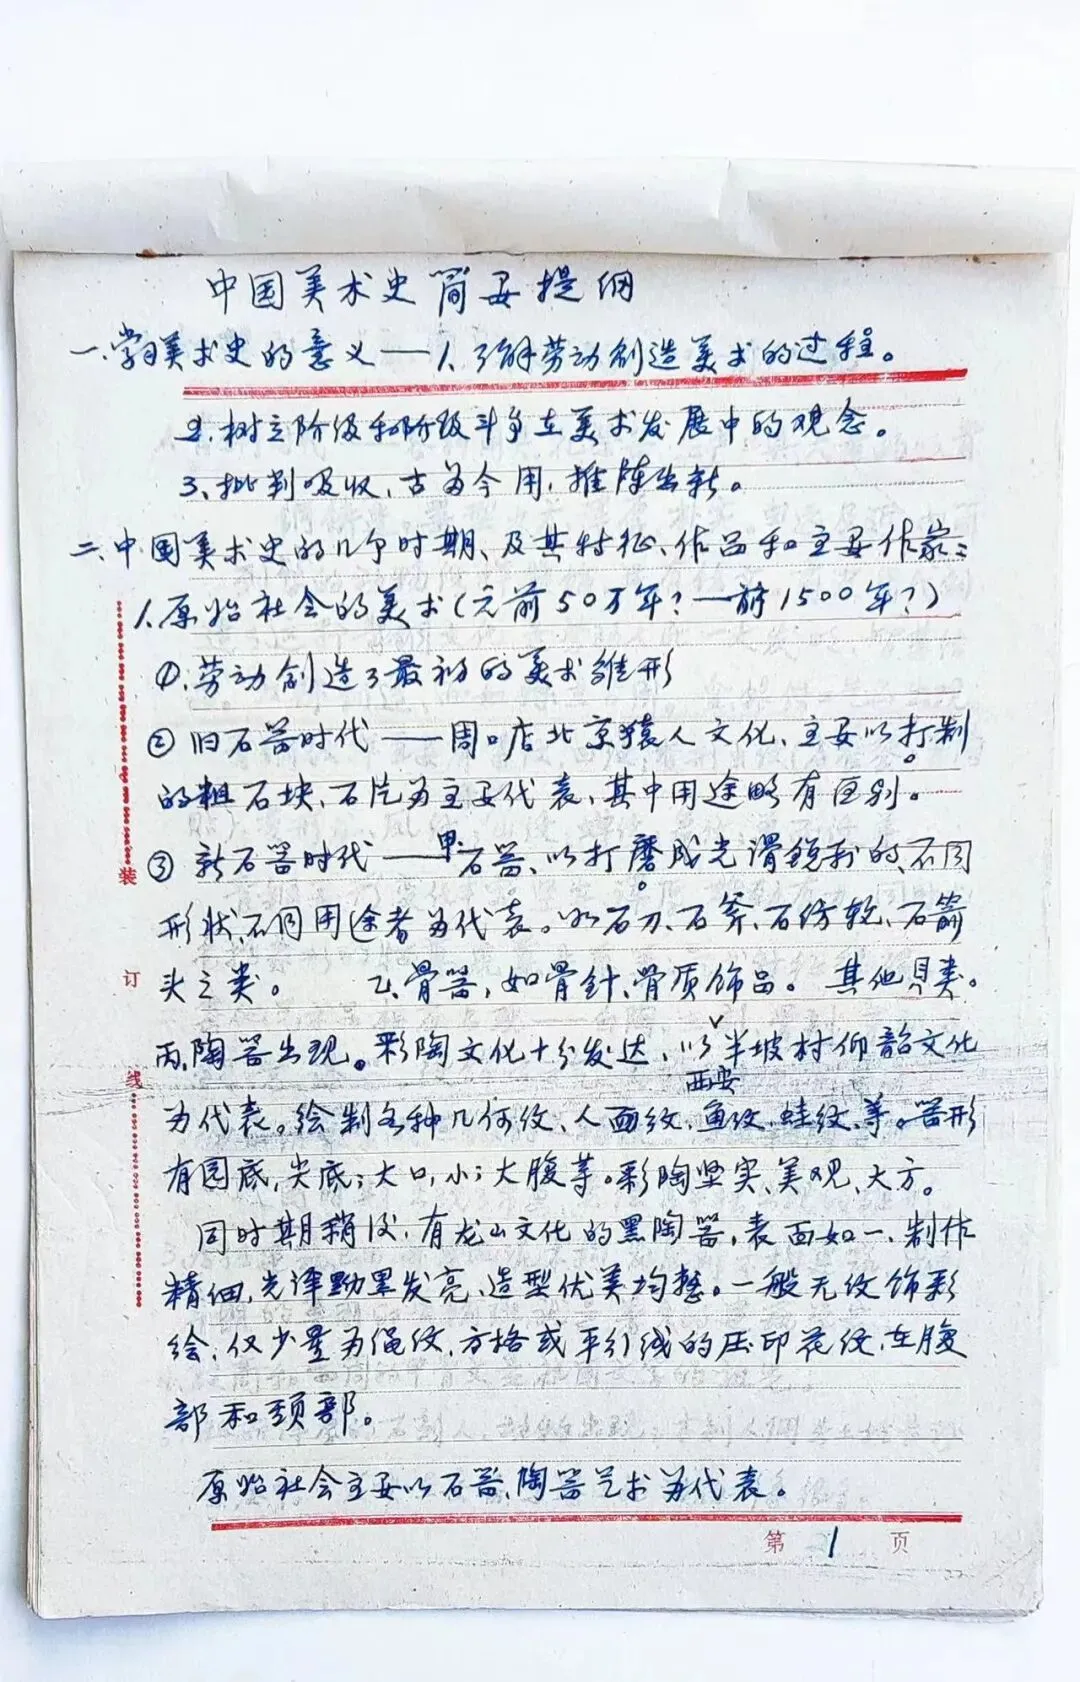 中国美术史简要提纲
一、学习美术史的意义——1、了解劳动创造美术的过程。
2、树立阶级和阶级斗争在美术发展中的观念。
3、批判吸收，古为今用，推陈出新。
二、中国美术史的几个时期、及其特征、作品和主要作家：
1、原始社会的美术（元前50万年？—前1500年？）
①、劳动创造了最初的美术雏形
② 旧石器时代——周口店北京猿人文化、主要以打制
的粗石块、石片为主要代表、其中用途略有区别。
③ 新石器时代——甲、石器、以打磨成光滑锐利的、不同
形状、不同用途者为代表。如石刀、石斧、石纺轮、石箭
头之类。 乙、骨器，如骨针、骨质饰品。其他贝类。
丙、陶器出现。彩陶文化十分发达、以西安半坡村仰韶文化
为代表。绘制各种几何纹、人面纹、鱼纹、蛙纹、等。器形
有圆底，尖底；大口，小；大腹等。彩陶坚实、美观、大方。
同时期稍后，有龙山文化的黑陶器，表面如一、制作
精细，光泽黝黑发亮、造型优美均整。一般无纹饰彩
绘，仅少量为绳纹、方格或平行线的压印花纹、在腹
部和颈部。
原始社会主要以石器、陶器艺术为代表。
装
订
线
第 1 页